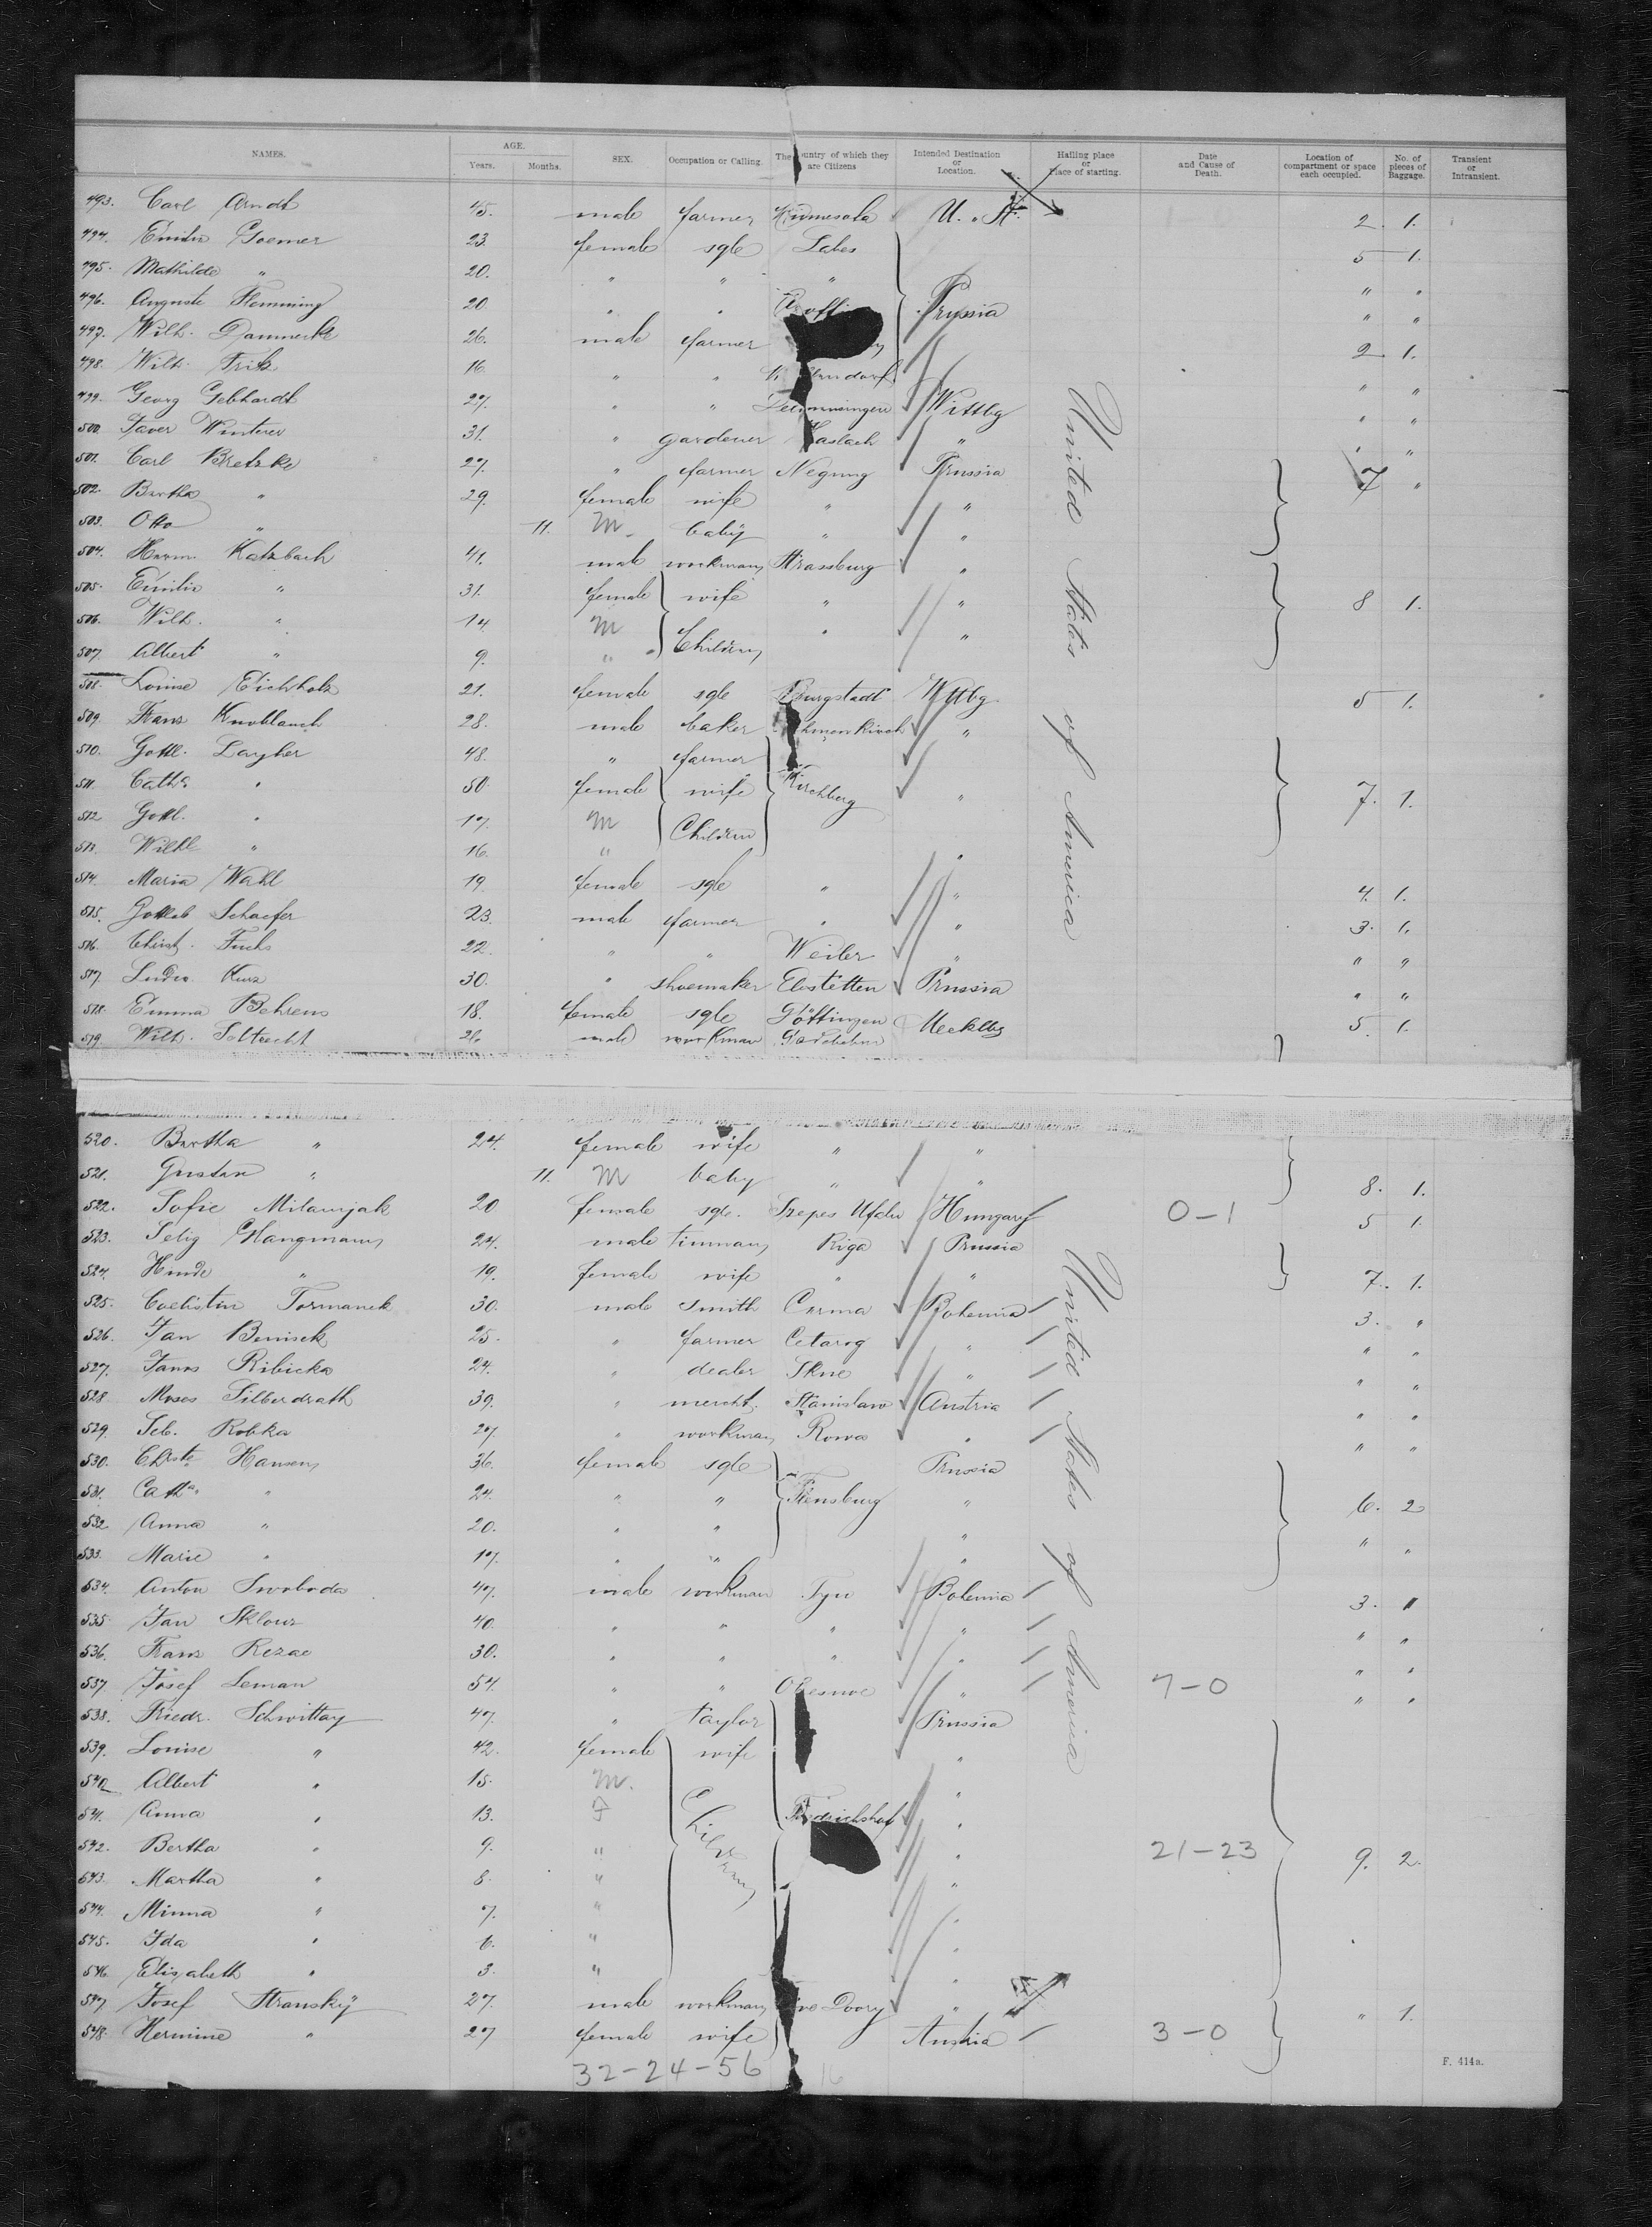 NAMES. AGE. Years. Months. SEX. Occupation or Calling. The Country of which they are Citizens Intended Destination or Location. Hailing place or Place of starting. Date and Cause of Death. Location of compartment or space each occupied. No. of pieces of Baggage. Transient or Intransient.
493. Carl Arndt 45. male farmer Minnesota U. St. 2. 1.
494. Emilie 23. female sgle Labes 5 1.
495. Mathilde " 20. " " "
496. Auguste Flemming 20. " " Prussia " "
497. Wilh. Dammerke 26. male farmer 2 1.
498. Wilh. Fritz 16. " " " "
499. Georg Gebhardt 27. " " Wittbg " "
500. Xaver Winterer 31. " gardener Haslach " " "
501. Carl Bretzke 27. " farmer Prussia 7 "
502. Bertha " 29. female wife " "
503. Otto " 11. M. baby " "
504. Herm. Katzbach 41. male workman Strassburg "
505. Emilie " 31. female wife " " 8 1.
506. Wilh. " 14. M Children " "
507. Albert " 9. "
508. Louise Eichholz 21. female sgle Burgstadt Wttbg 5 1.
509. Franz Knoblauch 28. male baker "
510. Gottl. Layher 48. " farmer
511. Catha " 50 female wife Kirchberg " 7. 1.
512 Gottl. " 17. M Children
513. Wilh " 16. " "
514. Maria Wahl 19. female sgle " " 4. 1.
515. Gottlob Schaefer 23. male farmer " " 3. 1.
516. Christ. Fuchs 22. " " Weiler " " "
517. Ludw. Kurz 30. " shoemaker Prussia " "
518. Emma Behrens 18. female sgle Göttingen Mecklbg 5. 1.
519. Wilh. Soltrecht 26 male workman
520. Bertha " 24. female wife " "
521. Gustav " 11. M baby " " 8. 1.
522. Sofie 20 female sgle. Szepes Hungary 0-1 5 1.
523. Selig Glangmann 24. male tinman Riga Prussia
524. Hinde " 19. female wife " " 7. 1.
525. Coelistin Tormanek 30. male smith Cerma Bohemia 3. "
526. Jan Benisek 25. " farmer " " "
527. Ribicka 24. " dealer " " "
528. Moses Silberdrath 39. " mercht. Stanislaw Austria " "
529. Seb. Robka 27 " workman Rowa " " "
530. Chrste Hansen 36. female sgle Prussia
531. Catha " 24. " " Flensburg " 6. 2
532 Anna " 20. " " "
533. Marie " 17. " " " " "
534. Anton Swoboda 47. male workman Tyn Bohemia 3. "
535. Jan Sklour 40. " " " " " "
536. Franz Rezac 30. " " " " " "
537. Josef Leman 54. " " " 7-0 " "
538. Friedr. Schwittay 47. " taylor Prussia
539. Louise " 42. female wife "
540 Albert " 15. M. Children "
541. Anna " 13. F Friedrichshof "
542. Bertha " 9. " " 21-23 9. 2.
543. Martha " 8. " "
544. Minna " 7. " "
545. Ida " 6. " "
546. Elisabeth " 3. " "
547 Josef Stransky 27. male workman " " 1.
548. Hermine " 27 female wife Austria 3-0
32-24-56 16
F. 414a.
United States of America
United States of America